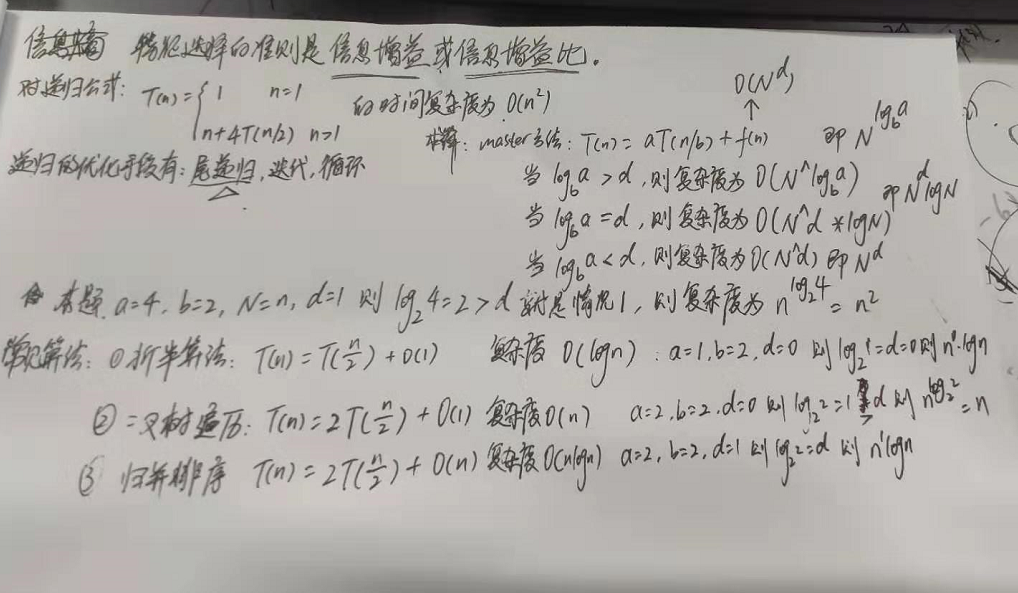 信息熵 特征选择的准则是信息增益或信息增益比。
对递归公式: T(n)={1 n=1 的时间复杂度为 O(n²)
n+4T(n/2) n>1
O(N^d)
↑
求解: master方法: T(n)=aT(n/b)+f(n) 即 N^log_b a
递归的优化手段有: 尾递归, 迭代, 循环
当 log_b a > d, 则复杂度为 O(N^log_b a)
当 log_b a = d, 则复杂度为 O(N^d * logN) 即 N^d logN
当 log_b a < d, 则复杂度为 O(N^d) 即 N^d
本题 a=4, b=2, N=n, d=1 则 log_2 4=2>d 就是情况1, 则复杂度为 n^log_2 4 = n²
常见算法: ①折半算法: T(n)=T(n/2)+O(1) 复杂度 O(logn): a=1, b=2, d=0 则 log_2 1=d=0 则 n⁰·logn
②二叉树遍历: T(n)=2T(n/2)+O(1) 复杂度O(n) a=2, b=2, d=0 则 log_2 2=1>d 则 n^log_2 2=n
③ 归并排序 T(n)=2T(n/2)+O(n) 复杂度O(nlogn) a=2, b=2, d=1 则 log_2 2=d 则 n¹logn